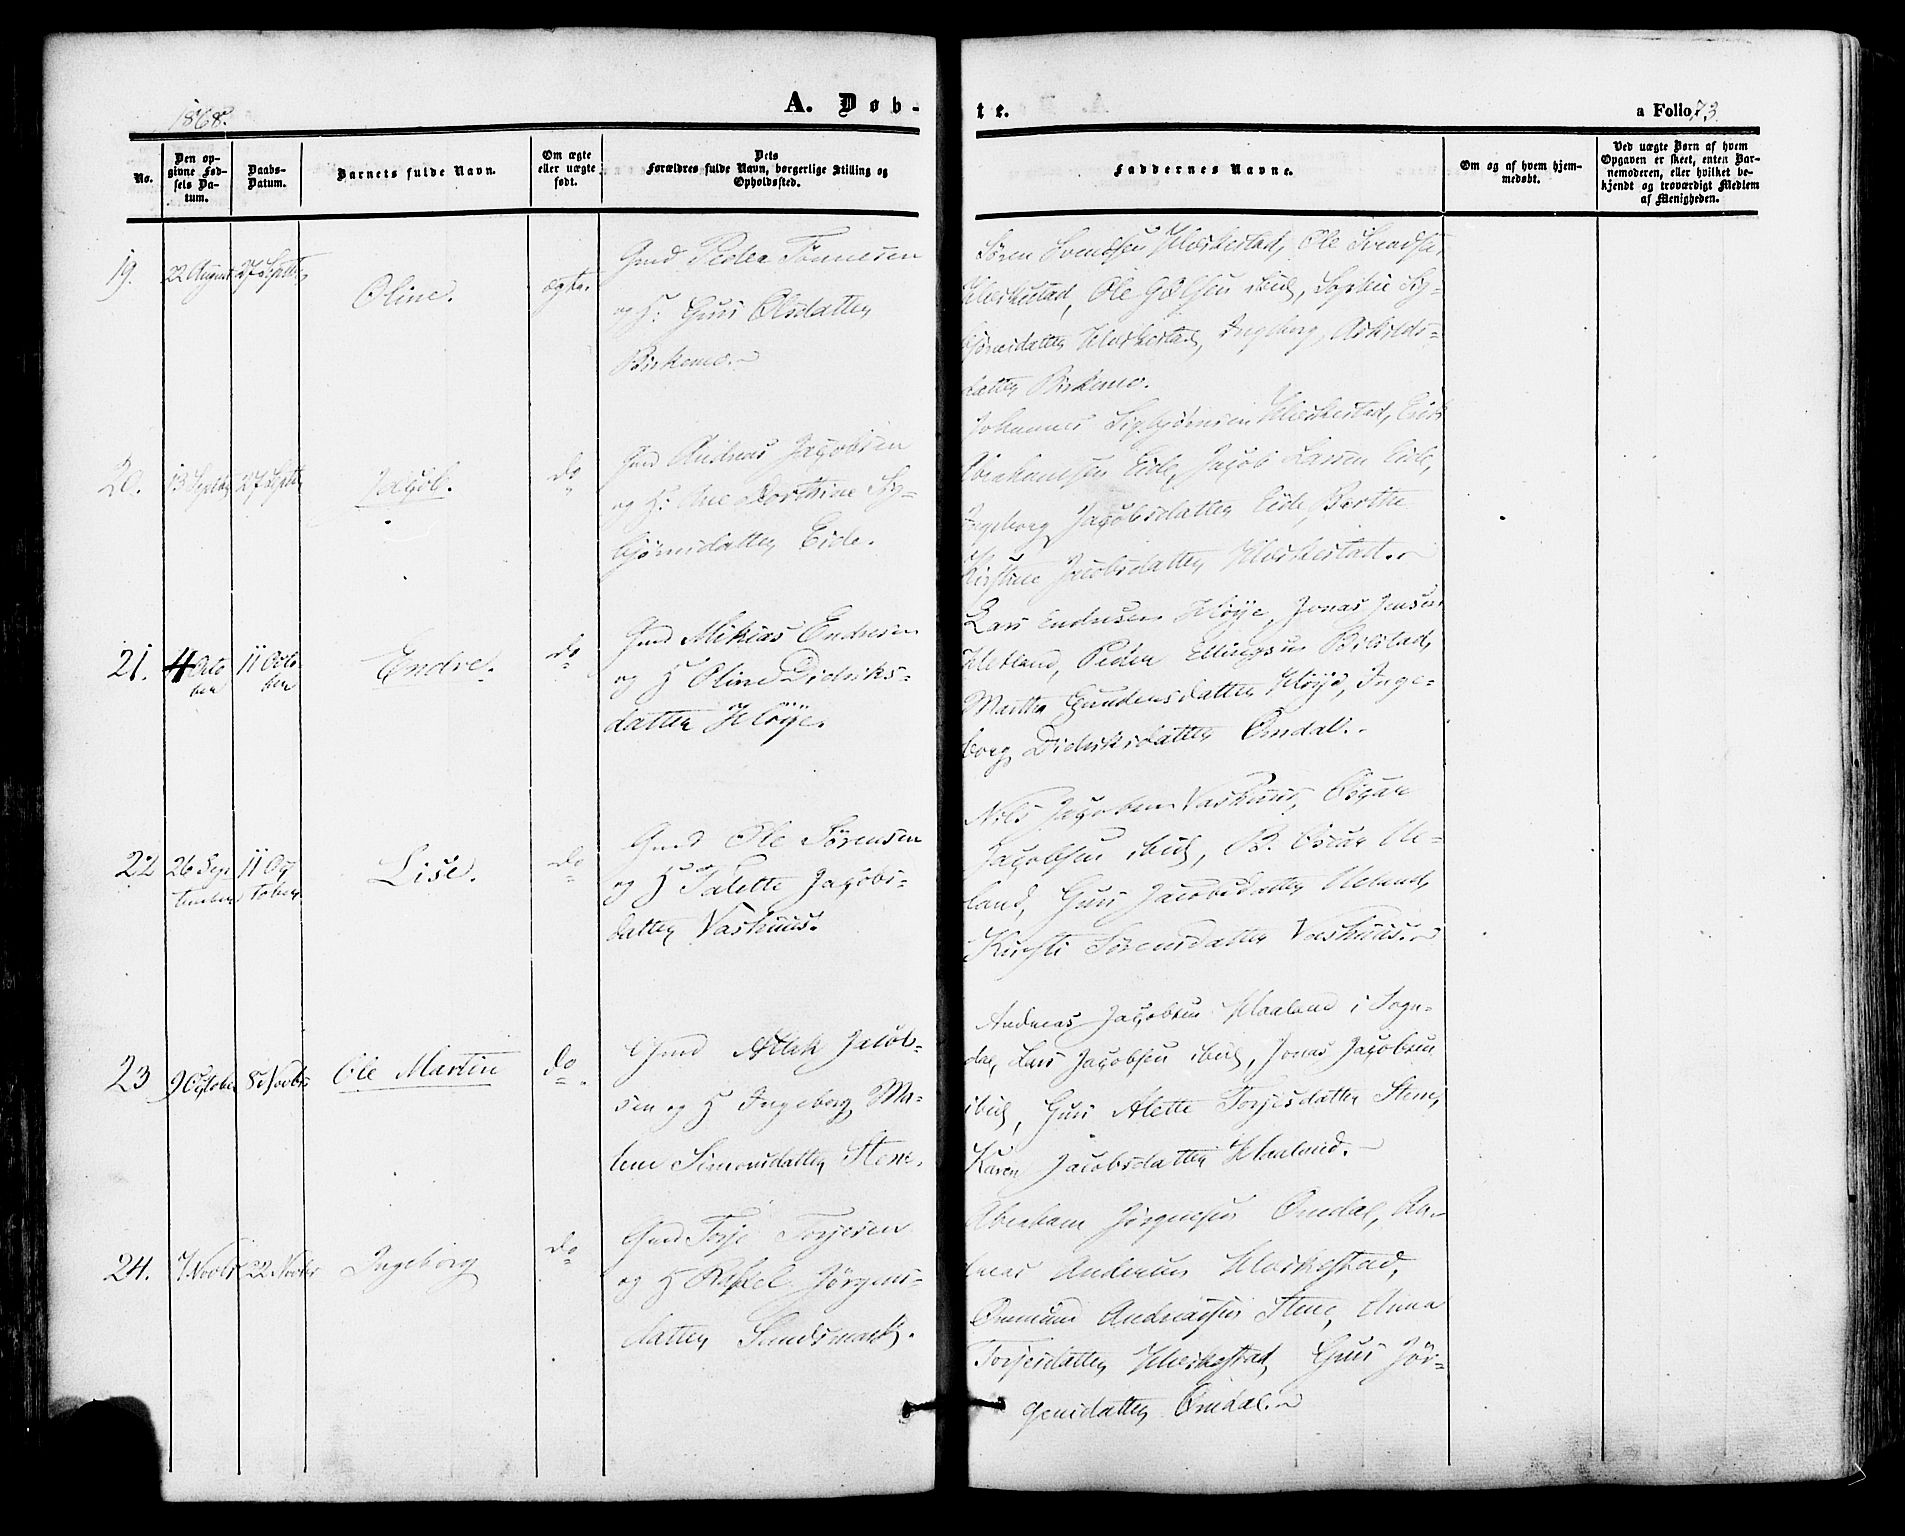 1868.
A. Døb-
te.
a Folio 73.
No.
Den op-
givne Fød-
sels Da-
tum.
Daabs-
Datum.
Barnets fulde Navn.
Om ægte
eller uægte
født.
Dets
Forældres fulde Navn, borgerlige Stilling og
Opholdssted.
Faddernes Navne.
Om og af hvem hjem-
medøbt.
Ved uægte Børn af hvem
Opgaven er skeet, enten Bar-
nemoderen, eller hvilket be-
kjendt og troværdigt Medlem
af Menigheden.
19.
22 August
27 Septbr
Oline.
ægte.
Gmd Peder Tønnesen
og H: Guri Olsdatter
Birkemo.
Søren Svendsen Hæskestad, Ole Svendsen
Hæskestad, Ole ibid, Sophie Sig-
bjørnsdatter Hæskestad, Ingeborg Askilds-
datter Birkemo.
20.
13 Septbr
27 Septbr
Jacob.
do
Gmd Andreas Jacobsen
og H: Ane Dorthine Sig-
bjørnsdatter Eide.
Johannes Sigbjørnsen Hæskestad, Erik
Abrahamsen Eide, Jacob Larsen Eide,
Ingeborg Jacobsdatter Eide, Berthe
Kirstine Jacobsdatter Hæskestad.
21.
4 Octo
ber
11 Octo
ber
Endre.
do
Gmd Mikias Endresen
og H Oline Didriks-
datter Høye.
Lars Endresen Høye, Jonas Jensen
Hetland, Peder Ellingsen Bilstad,
Martha Høye, Inge-
borg Didriksdatter Omdal.
22
26 Sep
tember
11 Oc
tober
Lise.
do
Gmd Ole Sørensen
og H Talette Jacobs-
datter Vashuus.
Nils Jacobsen Vashuus, Osmund
Jacobsen ibid, He-
land, Guri Jacobsdatter Heland,
Kirsti Sørensdatter Vashuus.
23
9 October
8 Novbr
Ole Martin
do
Gmd Atlak Jacob-
sen og H Ingeborg Ma-
lene Simonsdatter Stene.
Andreas Jacobsen Haaland i Sogn-
dal, Lars Jacobsen ibid, Jonas Jacobsen
ibid, Guri Alette Torjesdatter Stene,
Karen Jacobsdatter Haaland.
24.
7 Novbr
22 Novbr
Ingeborg
do
Gmd Torje Torjesen
og H Rakel Jørgens-
datter Sandsmark.
Abraham Jørgensen Omdal, An-
dreas Andersen Hæskestad,
Ommund Andreassen Stene, Anna
Torjesdatter Hæskestad, Guri Jør-
gensdatter Omdal.